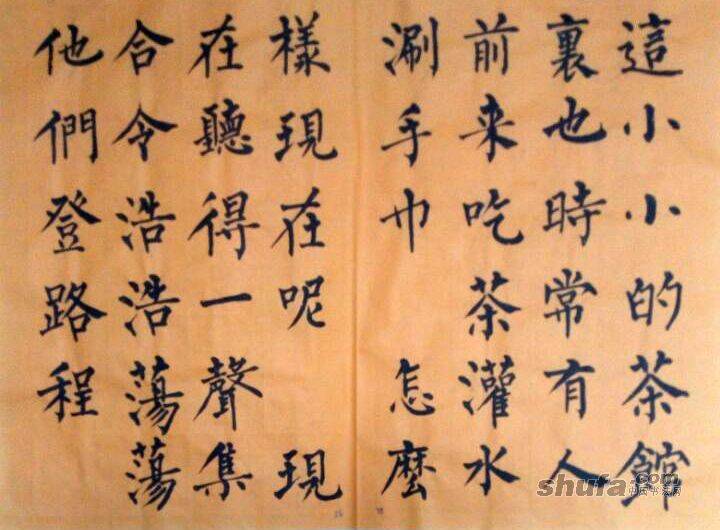 這小小的茶館
裏也時常有人
前来吃茶灌水
涮手巾 怎麼
樣現在呢 現
在聽得一聲集
合令浩浩蕩蕩
他們登路程
shufa.com
中国书法网